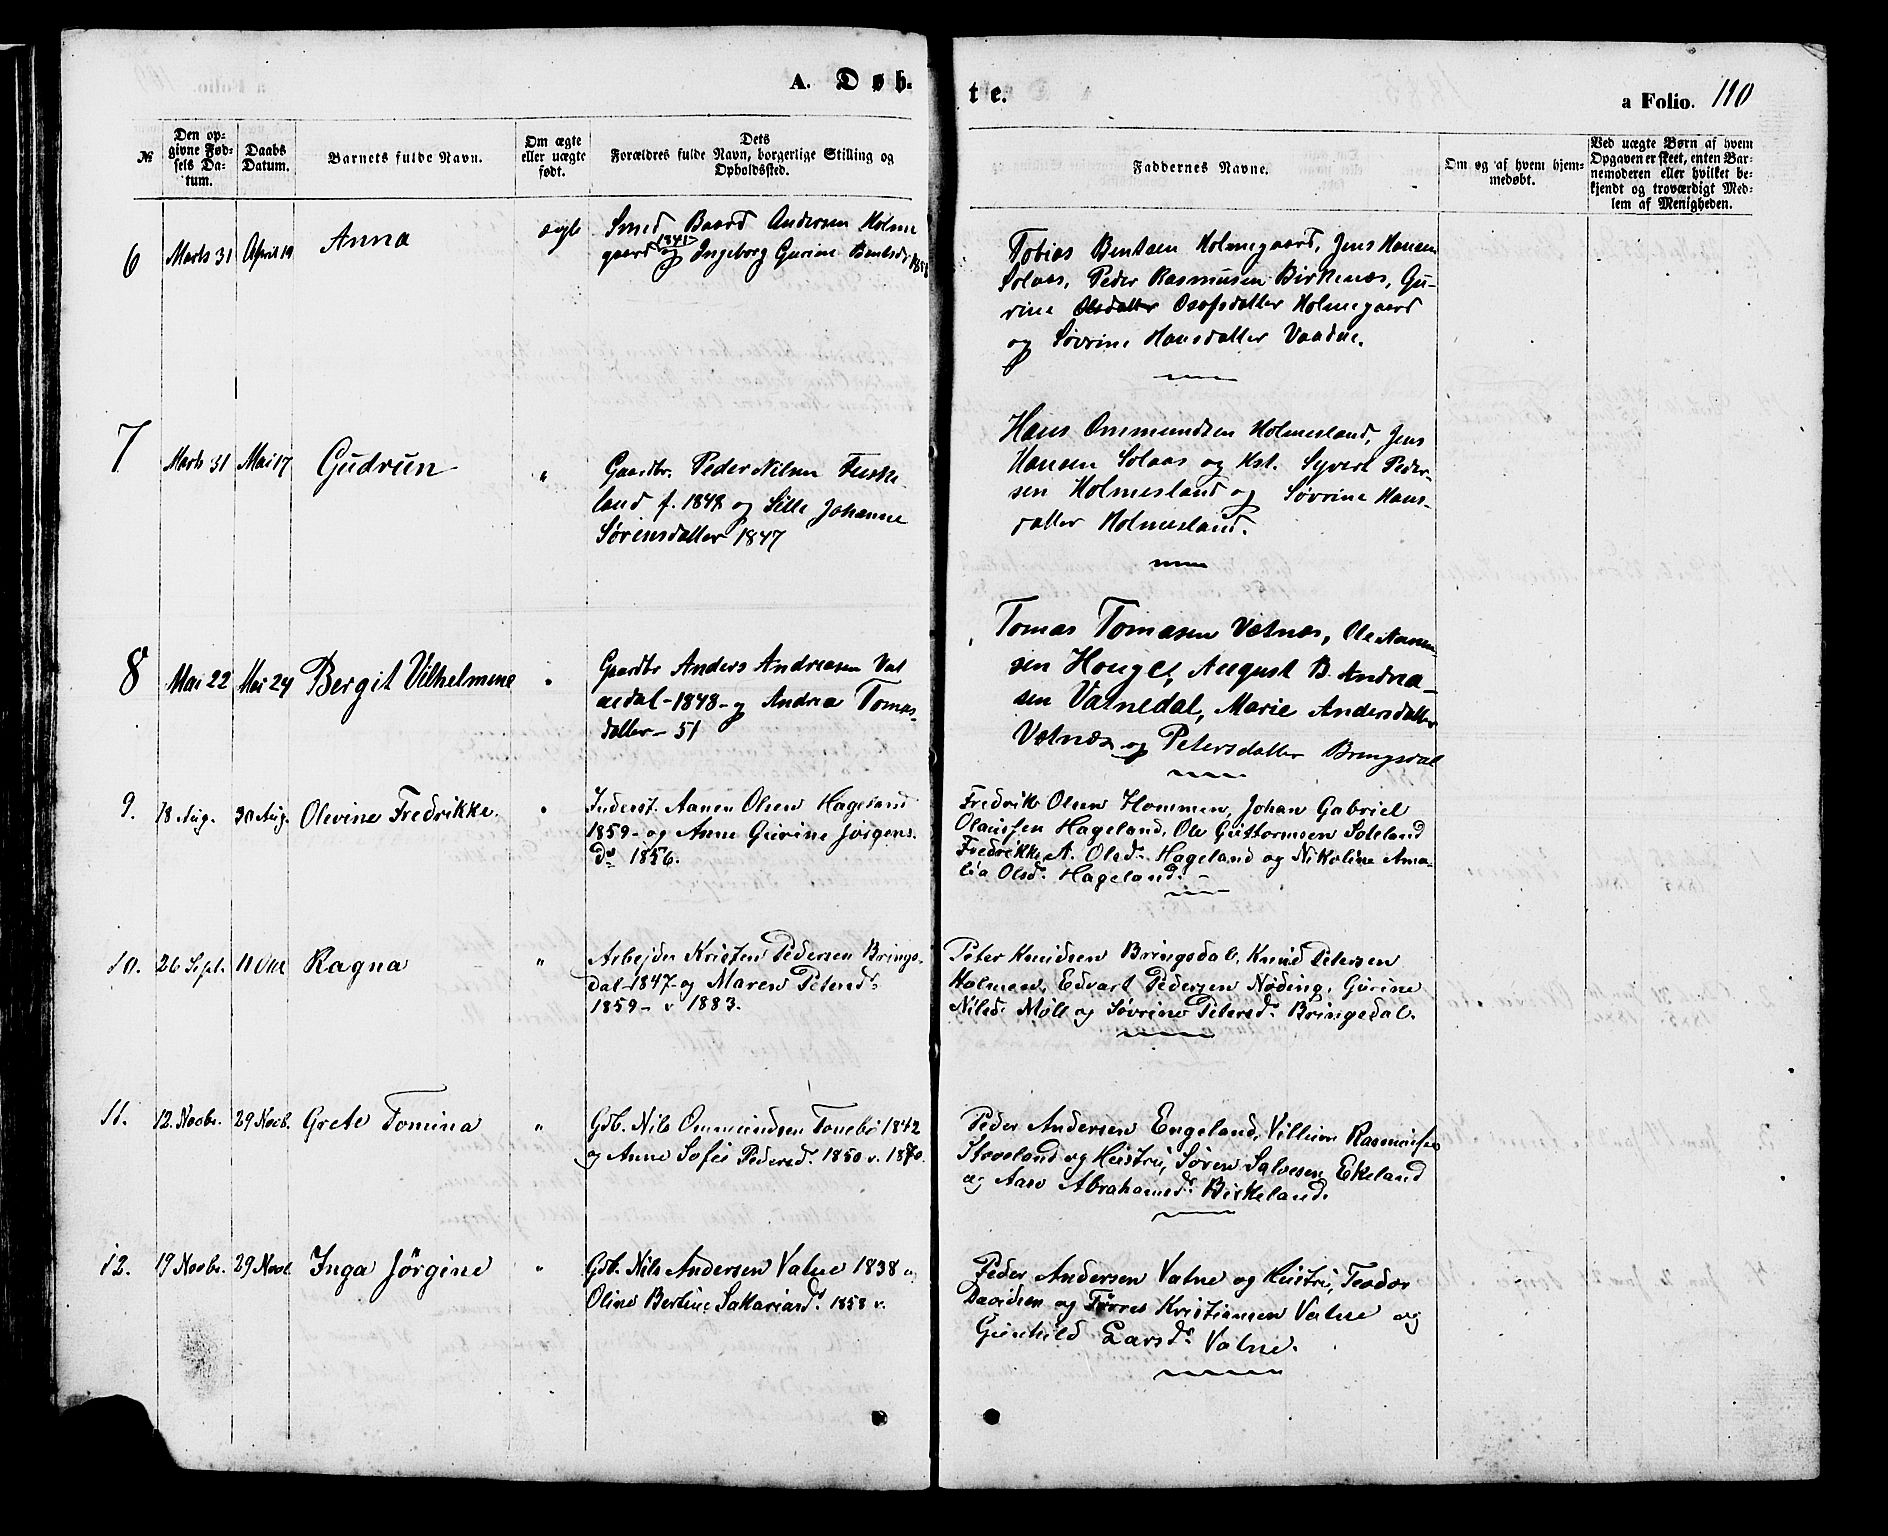 A. Døb-
te.
a Folio. 110
№
Den op-
givne Fød-
sels Da-
tum.
Daabs
Datum.
Barnets fulde Navn.
Om ægte
eller uægte
født.
Dets
Forældres fulde Navn, borgerlige Stilling og
Opholdssted.
Faddernes Navne.
Om og af hvem hjem-
medøbt.
Ved uægte Børn af hvem
Opgaven er skeet, enten Bar-
nemoderen eller hvilket be-
kjendt og troværdigt Med-
lem af Menigheden.
6 Marts 31 April 19 Anna ægte
Smed Baard Andersen Holme
gaard 1841 og Ingeborg Gurine Bentsdr 1858
Tobias Bentsen Holmegaard, Jens Hansen
Solaas, Peder Rasmusen Birkenæs, Gu-
rine Olsdatter Osofsdatter Holmegaard
og Søvrine Hansdatter Vaadne.
7 Marts 31 Mai 17 Gudrun "
Gaardbr. Peder Nilsen Fuske-
land f. 1848 og Sille Johanne
Sørensdatter 1847
Hans Ommundsen Holmesland, Jens
Hansen Solaas og Kst. Syvert Peder-
sen Holmesland og Søvrine Hans-
datter Holmesland.
8 Mai 22 Mai 24 Bergit Vilhelmine "
Gaardbr Anders Andreasen Vat
nedal - 1848 - og Andrea Tomas-
datter - 51
Tomas Tomasen Vætnæs, Ole
sen Houge, August B. Andrea-
sen Vatnedal, Marie Andersdatter
Vætnæs og Petersdatter Bringsdal
9. 18 Aug. 30 Aug. Olevine Fredrikke. "
Inderst. Aanen Olsen Hageland
1859 - og Anne Gurine Jørgens-
Dr 1856.
Fredrik Olsen Hommen, Johan Gabriel
Olaussen Hageland, Ole Guttormsen Soteland
Fredrikke A. Olsd. Hageland og Nikoline Ama-
lia Olsd. Hageland. -
10. 26 Sept. 11 Okt Ragna "
Arbejder Kristen Pedersen Brings-
dal - 1847 - og Maren Petersdr
1859 - v 1883.
Peter Knudsen Bringsdal, Knud Petersen
Holmen, Edvart Pedersen Nøding, Gurine
Nilsd. Møll og Søvrine Petersd. Bringsdal.
11. 12. Novbr. 29 Novb. Grete Tomina "
Gdb. Nils Ommundsen Tonebø 1842
og Anne Sofie Pedersd. 1850 v. 1870.
Peder Andersen Engeland, Villum Rasmussen
Stoveland og Hustru, Søren Salvesen Ekeland
og Aase Abrahamsdr Birkeland.
12. 19 Novbr. 29 Novb. Inga Jørgine "
Gdb. Nils Andersen Vatne 1838 og
Oline Bertine Sakariasd. 1858 v.
Peder Andersen Vatne og Hustru, Teodor
Davidsen og Tørres Kristiansen Vatne og
Gunhild Larsdr Vatne.